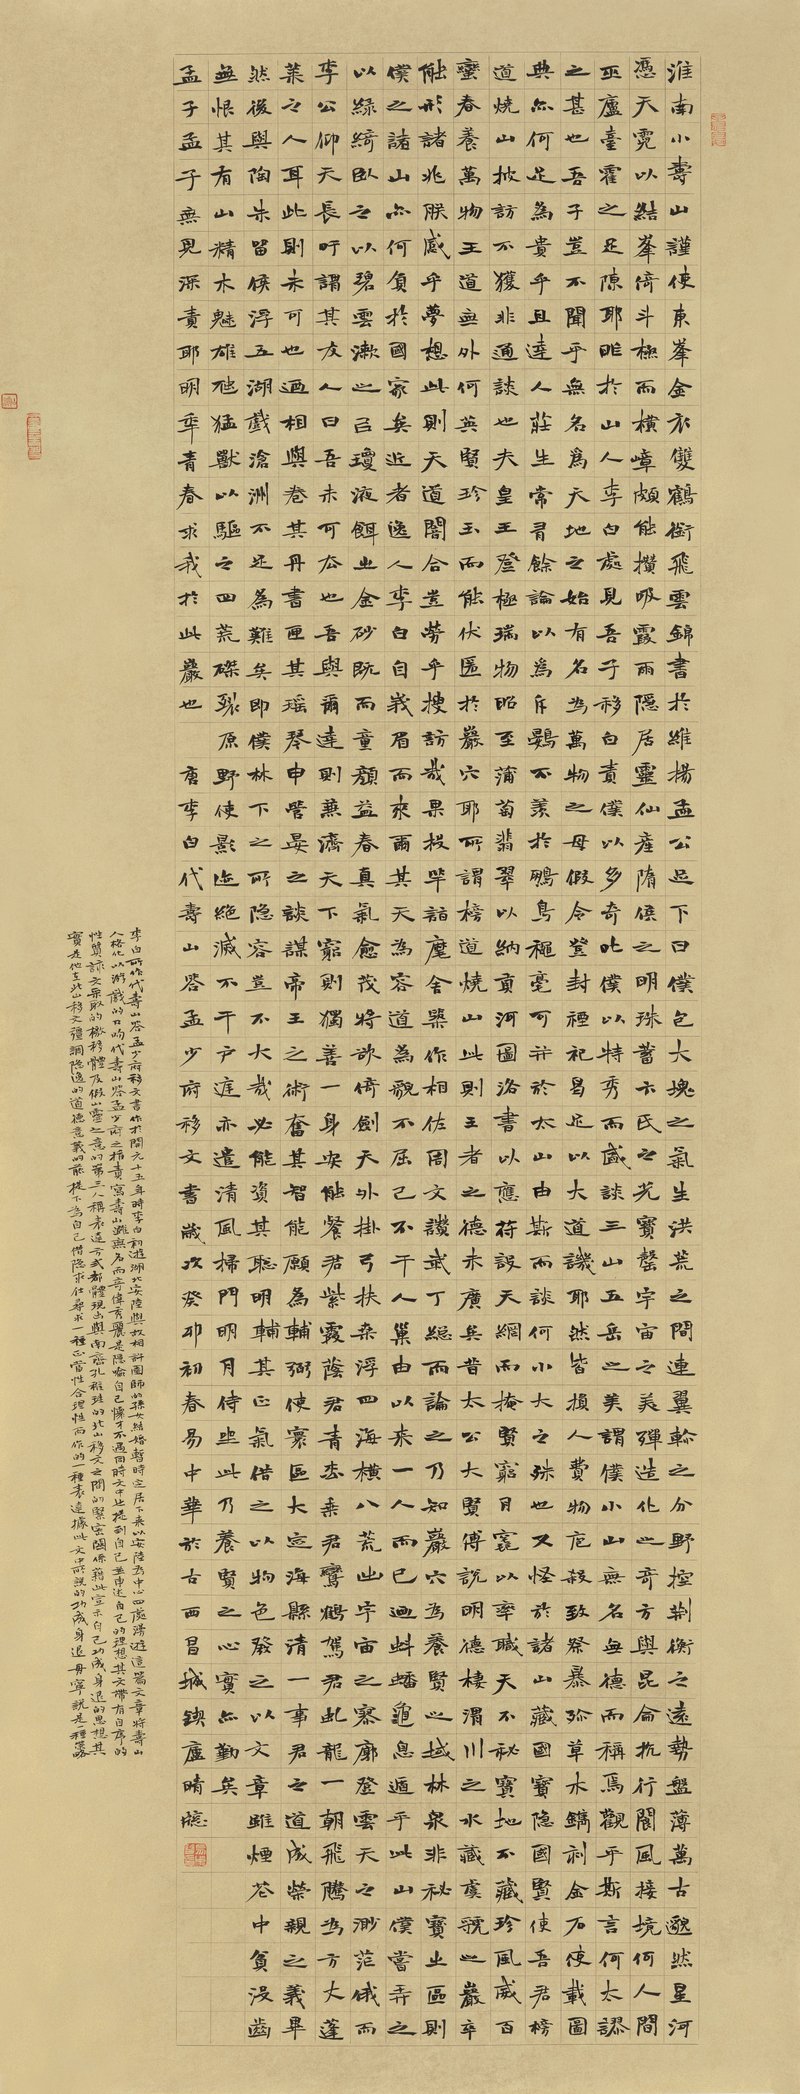 淮南小壽山謹使東峯金衣雙鶴銜飛雲錦書於維揚孟公足下曰僕包大塊之氣生洪荒之間連翼軫之分野控荊衡之遠勢盤薄萬古邈然星河
憑天霓以結峯倚斗極而橫嶂頗能攢吸霞雨隱居靈仙產隋侯之明珠蓄卞氏之光寶罄宇宙之美殫造化之奇方與昆侖抗行閬風接境何人間
巫廬臺霍之足陳耶昨於山人李白處見吾子移白責僕以多奇叱僕以特秀而盛談三山五岳之美謂僕小山無名無德而稱焉觀乎斯言何太謬
之甚也吾子豈不聞乎無名為天地之始有名為萬物之母假令登封禋祀曷足以大道譏耶然皆損人費物庖殺致祭暴殄草木鐫刻金石使載圖
典亦何足為貴乎且達人莊生常有餘論以為斥鷃不羨於鵬鳥秋毫可并於太山由斯而談何小大之殊也又怪於諸山藏國寶隱國賢使吾君榜
道燒山披訪不獲非通談也夫皇王登極瑞物昭至蒲萄翡翠以納貢河圖洛書以應符設天網而掩賢窮月窟以率職天不秘寶地不藏珍風威百
蠻春養萬物王道無外何英賢珍玉而能伏匿於巖穴耶所謂榜道燒山此則王者之德未廣矣昔太公大賢傅說明德棲渭川之水藏虞虢之巖卒
能形諸兆朕感乎夢想此則天道闇合豈勞乎搜訪哉果投竿詣麾舍築作相佐周文讚武丁總而論之乃知巖穴為養賢之域林泉非秘寶之區則
僕之諸山亦何負於國家矣近者逸人李白自峩眉而來爾其天為容道為貌不屈己不干人巢由以來一人而已迺蚪蟠龜息遁乎此山僕嘗弄之
以綠綺臥之以碧雲漱之以瓊液餌之金砂既而童顏益春真氣愈茂將欲倚劍天外掛弓扶桑浮四海橫八荒出宇宙之寥廓登雲天之渺茫俄而
李公仰天長吁謂其友人曰吾未可去也吾與爾達則兼濟天下窮則獨善一身安能餐君紫霞蔭君青松乘君鸞鶴駕君虬龍一朝飛騰為方丈蓬
萊之人耳此則未可也迺相與卷其丹書匣其瑤琴申管晏之談謀帝王之術奮其智能願為輔弼使寰區大定海縣清一事君之道成榮親之義畢
然後與陶朱留侯浮五湖戲滄洲不足為難矣即僕林下之所隱容豈不大哉必能資其聰明輔其正氣借之以物色發之以文章雖煙花中貧沒齒
無恨其有山精木魅雄虺猛獸以驅之四荒磔裂原野使影迹絕滅不干戶庭亦遣清風掃門明月侍坐此乃養賢之心實亦勤矣
孟子孟子無見深責耶明年青春求我於此巖也 唐李白代壽山答孟少府移文書歲次癸卯初春易中華於古西昌城鍥廬晴窗
李白所作代壽山答孟少府移文書作於開元十五年時李白初遊湖北安陸與故相許圉師的孫女結婚暫時定居下來以安陸為中心四處漫遊這篇文章將壽山
人格化以游戲的口吻代壽山答孟少府之指責寫壽山雖無名而奇偉秀麗是隱喻自己懷才不遇同時文中也提到自己並申述自己的理想其文帶有自序的
性質該文採取的檄移體及假山靈之意的第三人稱表達方式都體現出與南齊孔稚珪的北山移文之間的緊密關係藉此宣示自己功成身退的思想其
實是他在北山移文強調隱逸的道德意義的前提下為自己借隱求仕尋求一種正當性合理性而作的一種表達據此文中所說的功成身退毋寧說是一種策略